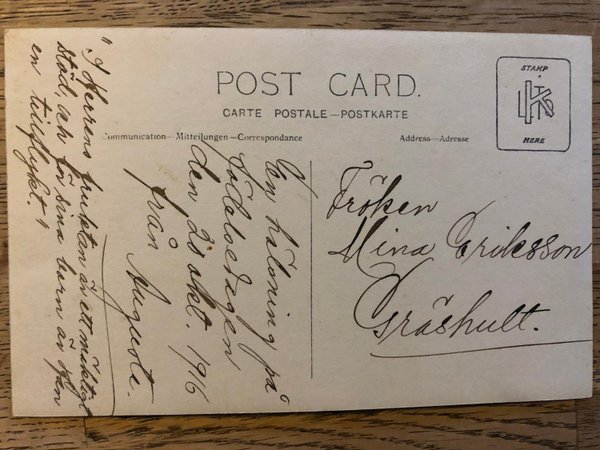 POST CARD.
CARTE POSTALE—POSTKARTE
Communication—Mitteilungen—Correspondance
Address—Adresse
STAMP
HERE
"I Herrens fruktan är ett mäktigt
stöd, och för sina barn är
en tillflykt."
En hälsning på
födelsedagen
den 28 okt. 1916
från Auguste.
Fröken
Mina Eriksson
Gräshult.